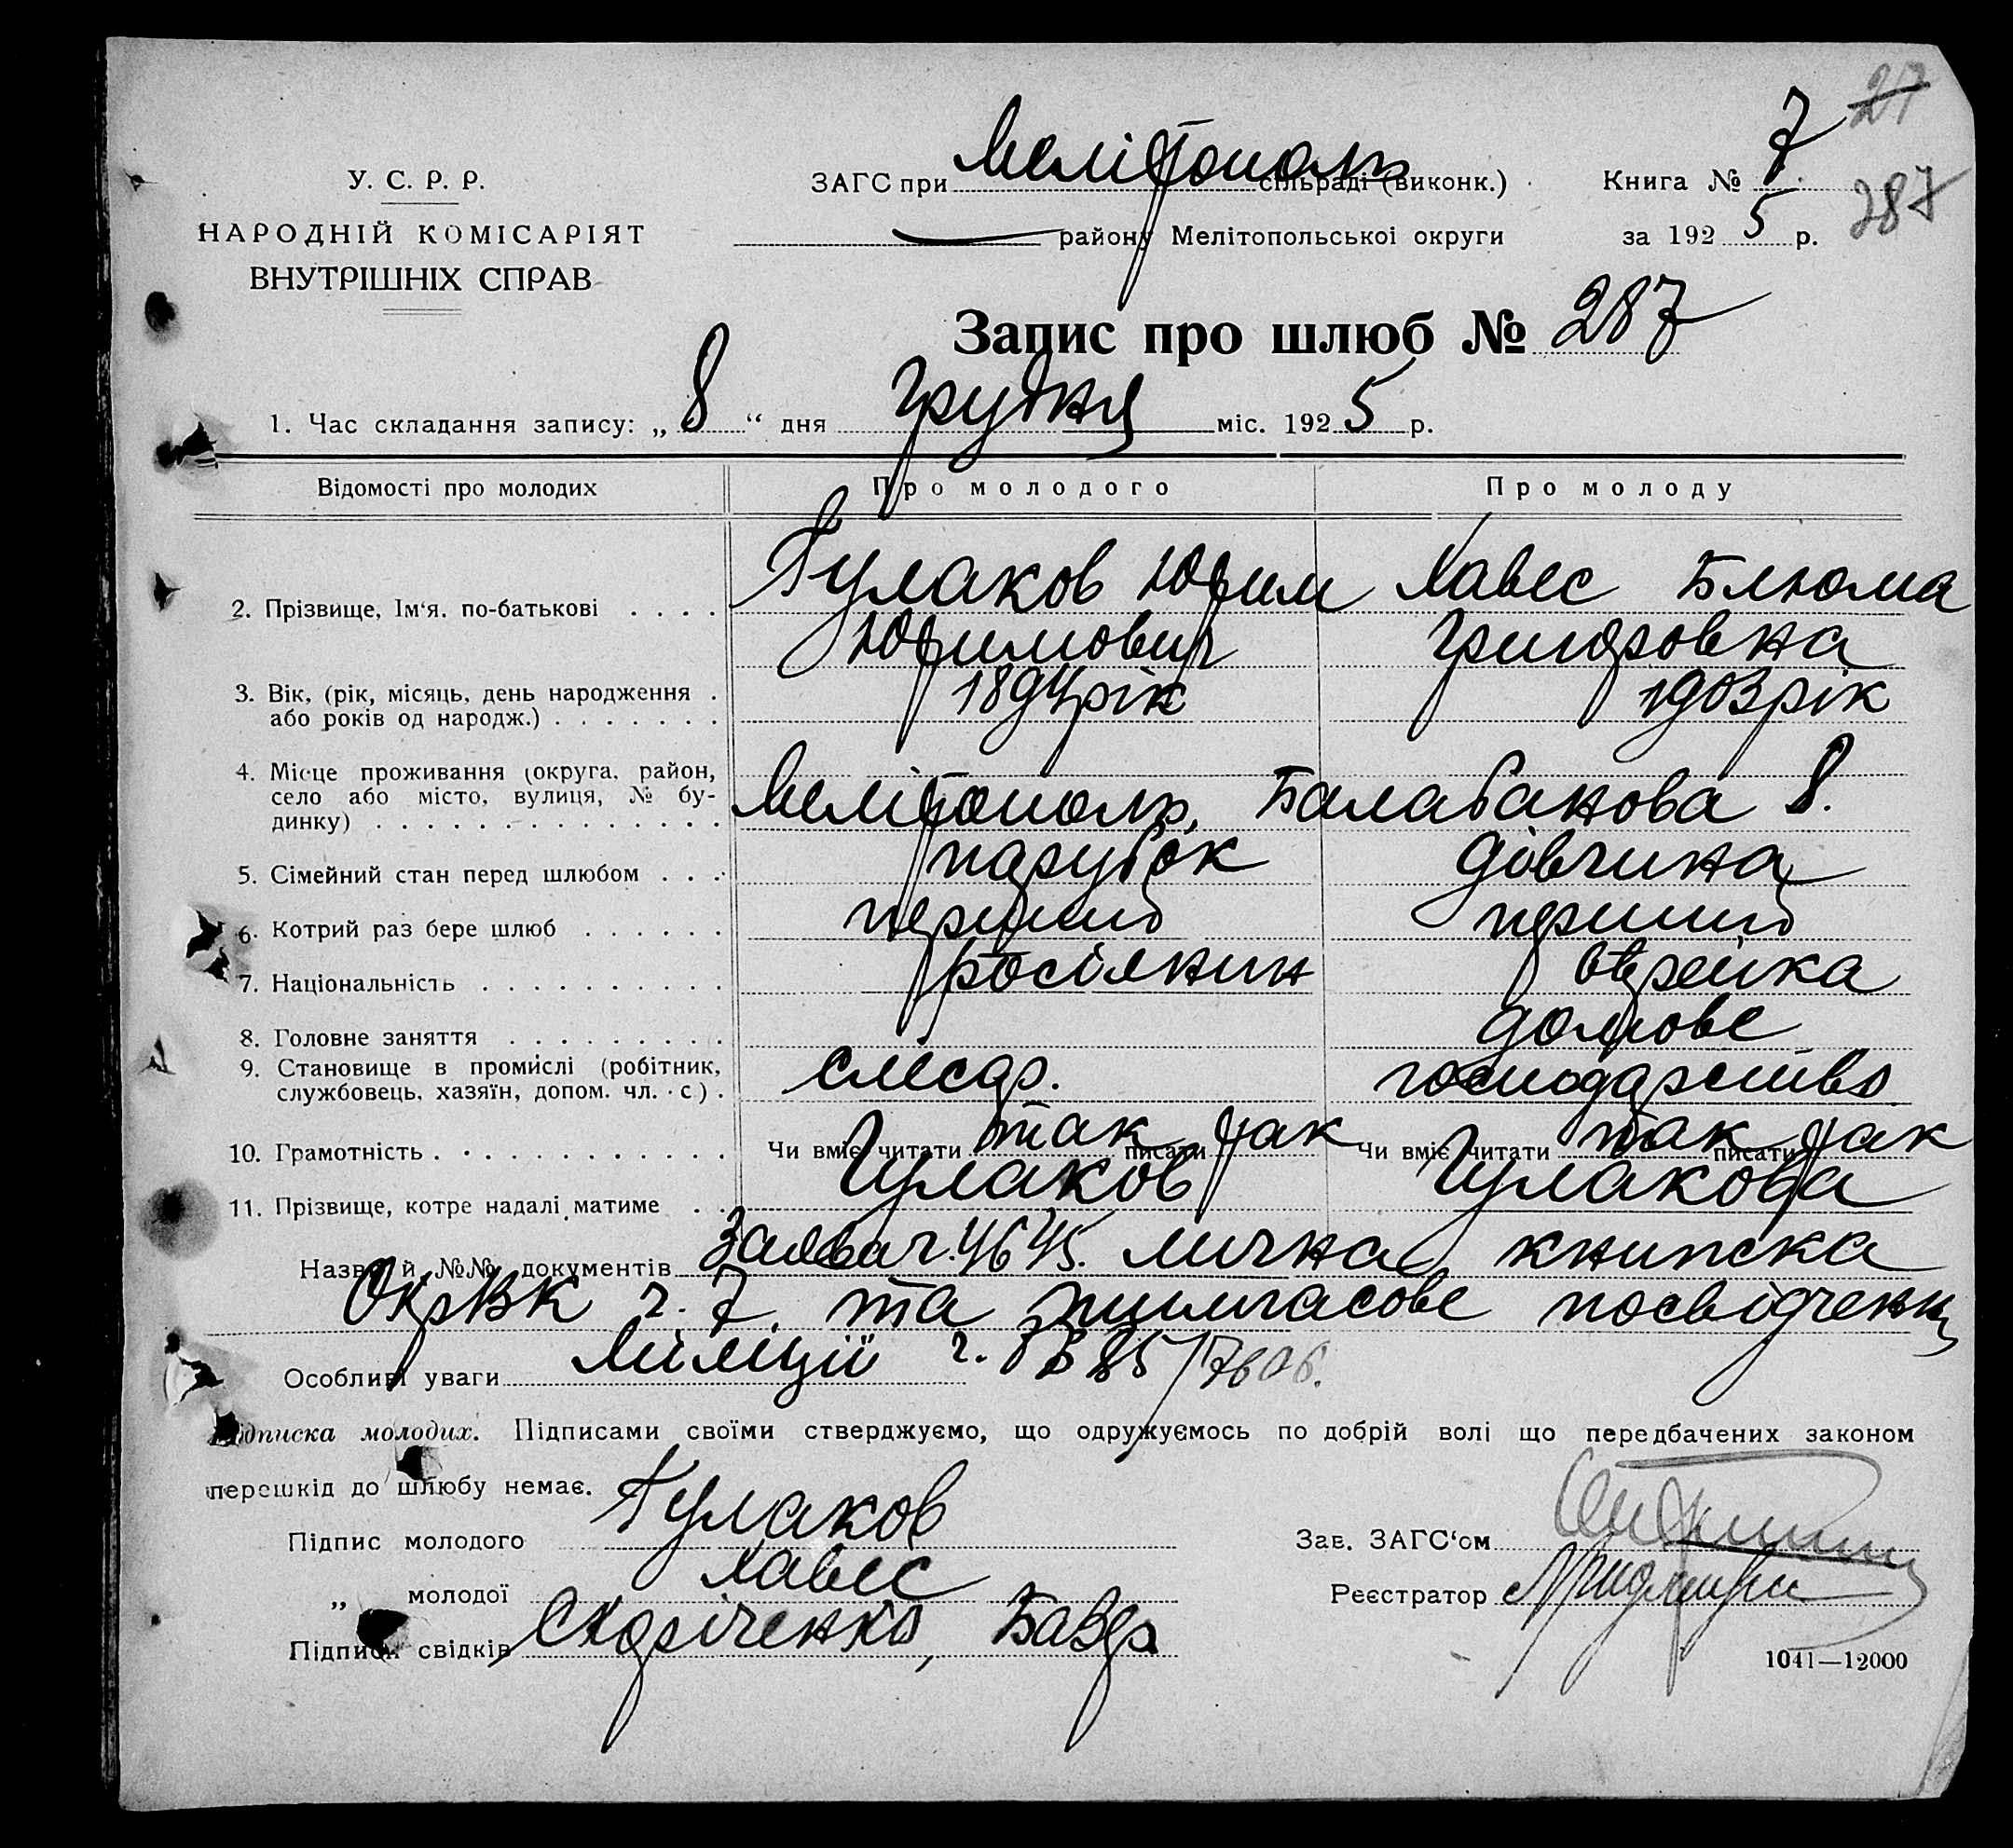 27
7
ЗАГС при Мелітополь сільраді (виконк.)
Книга № 7
287
У. С. Р. Р.
НАРОДНІЙ КОМІСАРІЯТ
ВНУТРІШНІХ СПРАВ
району Мелітопольської округи
за 1925 р.
Запис про шлюб № 287
1. Час складання запису: „8“ дня грудня міс. 1925 р.
Відомості про молодих Про молодого Про молоду
2. Прізвище, Ім‘я. по-батькові Гулаков Юхим Хавес Блюма
Юхимович Григоровна
3. Вік, (рік, місяць, день народження 1894 рік 1903 рік
або років од народж.)
4. Місце проживання (округа, район,
село або місто, вулиця, № бу-
динку) Мелітополь, Балабанова 8.
5. Сімейний стан перед шлюбом парубок дівчина
6. Котрий раз бере шлюб перший перший
7. Національність росіянин еврейка
8. Головне заняття домове
9. Становище в промислі (робітник, слюсар. господарство
службовець, хазяїн, допом. чл. с.)
10. Грамотність Чи вміє читати так писати так Чи вміє читати так писати так
11. Прізвище, котре надалі матиме Гулаков Гулакова
Назва й №№ документів ч. 4645. лична книжка
ОкрВК ч. 7. та тимчасове посвідчення
Особливі уваги Міліції ч.
Підписка молодих. Підписами своїми стверджуємо, що одружуємось по добрій волі що передбачених законом
перешкід до шлюбу немає.
Підпис молодого Гулаков
Зав. ЗАГС‘ом
„ молодої Хавес
Реєстратор
Підписи свідків
1041—12000